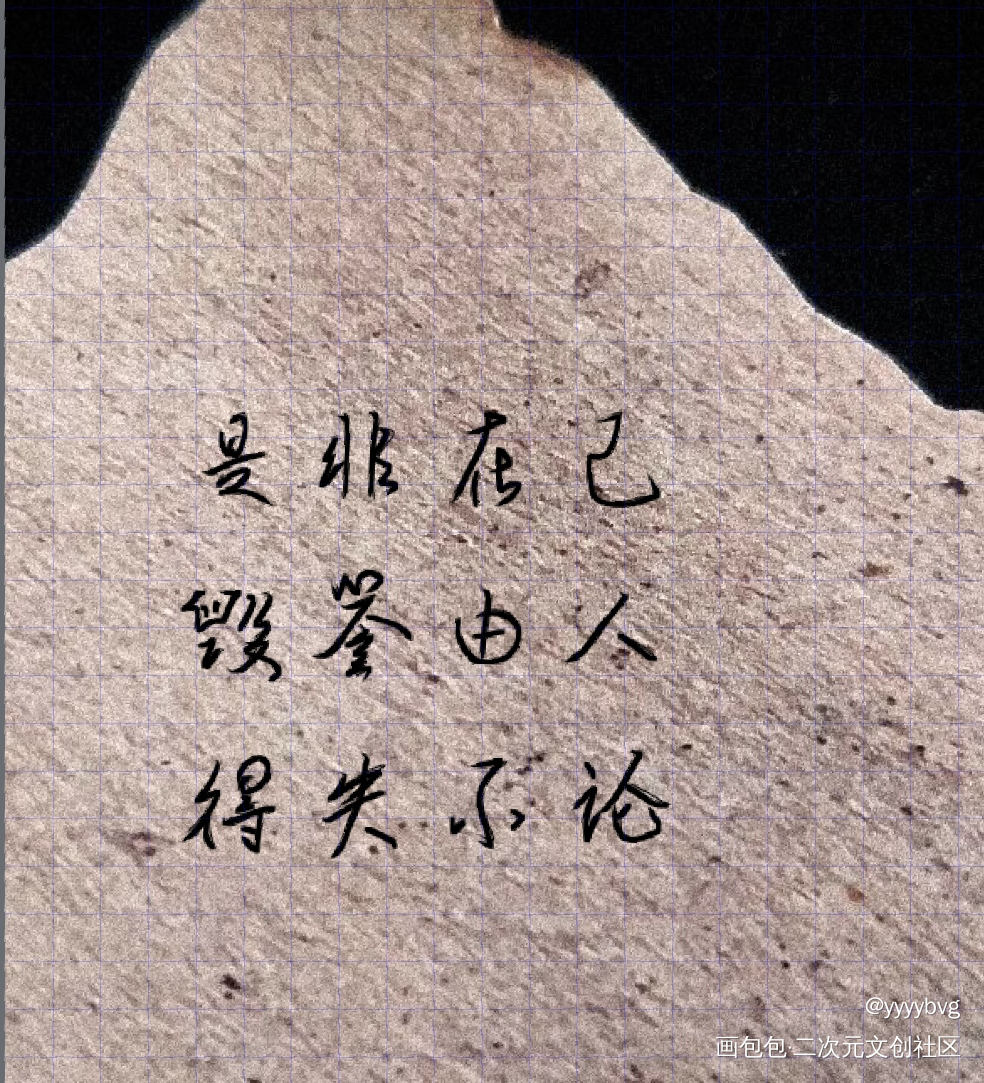 是非在己
毁誉由人
得失不论
@yyyybvg
画包包·二次元文创社区